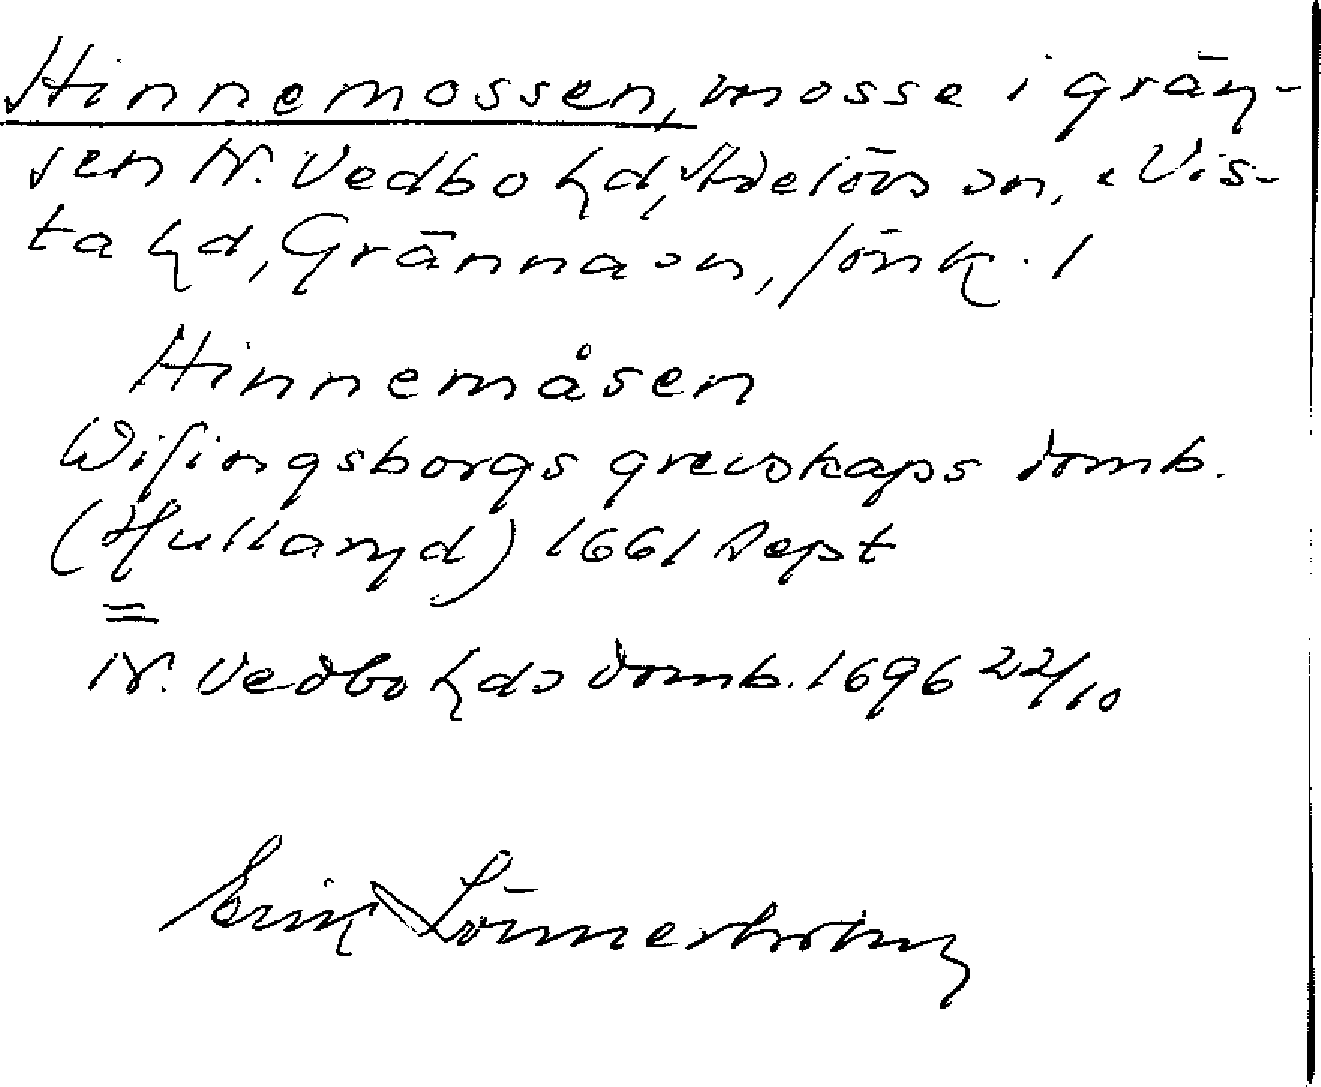 Hinnemossen, mosse i grän-
sen N. Vedbo hd, Adelövs sn, o Vis-
ta hd, Gränna sn, Jönk. l
Hinnemåsen
Wisingsborgs grevskaps domb.
(Hullaryd) 1661 Sept
=
N. Vedbo hds domb. 1696 22/10
Erik Lönnerholm